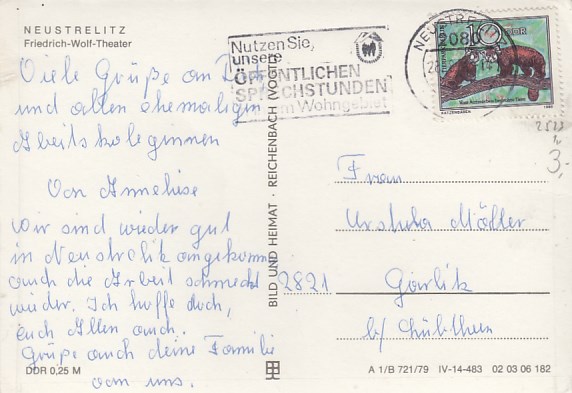 NEUSTRELITZ
Friedrich-Wolf-Theater
Viele Grüße an Dich
und allen ehemaligen
Arbeitskoleginnen
Von Anneliese
Wir sind wieder gut
in Neustrelitz angekommen
auch die Arbeit schmeckt
wieder. Ich hoffe doch,
euch Allen auch.
Grüße auch deine Familie
von uns.
DDR 0,25 M
BILD UND HEIMAT · REICHENBACH (VOGTL)
Nutzen Sie
unsere
ÖFFENTLICHEN
SPRECHSTUNDEN
im Wohngebiet
NEUSTRELITZ
208
10 DDR
KATZENBÄREN
3,-
Frau
Ursula Möller
2821 Görlik
b/
A 1/B 721/79 IV-14-483 02 03 06 182